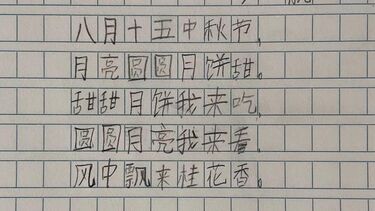 八月十五中秋节，
月亮圆圆月饼甜。
甜甜月饼我来吃，
圆圆月亮我来看。
风中飘来桂花香。